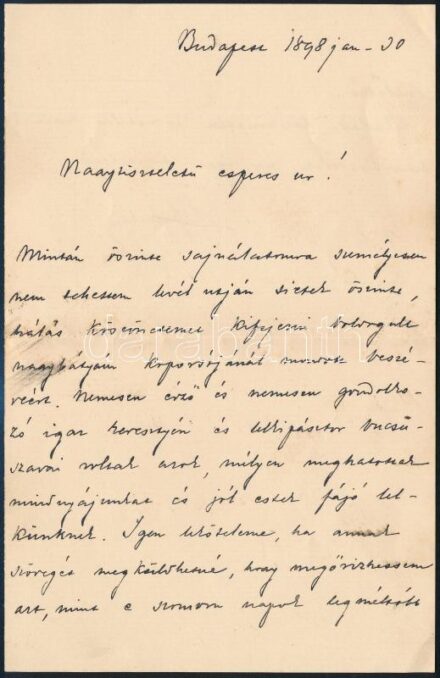 Budapest 1898 jan – 30
Nagytiszteletü esperes ur!
Miután őszinte sajnálatomra személyesen
nem tehettem levél utján sietek őszinte,
hálás köszönetemet kifejezni boldogult
nagybátyám koporsójánál mondott beszé-
déért. Nemesen érző és nemesen gondolko-
zó igaz keresztyén és lelkipásztor bucsu-
szavai voltak azok, mélyen meghatottak
mindnyájunkat és jól estek fájó lel-
künknek. Igen lekötelezne, ha annak
szövegét megküldhetné, hogy megőrizhessem
azt, mint e szomoru napok legméltóbb
darabanth